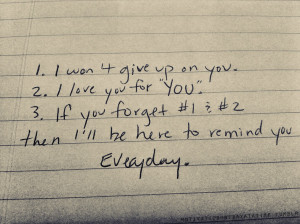 1. I won't give up on you.
2. I love you for "YOU".
3. If you forget #1 & #2
then I'll be here to remind you
Everyday.